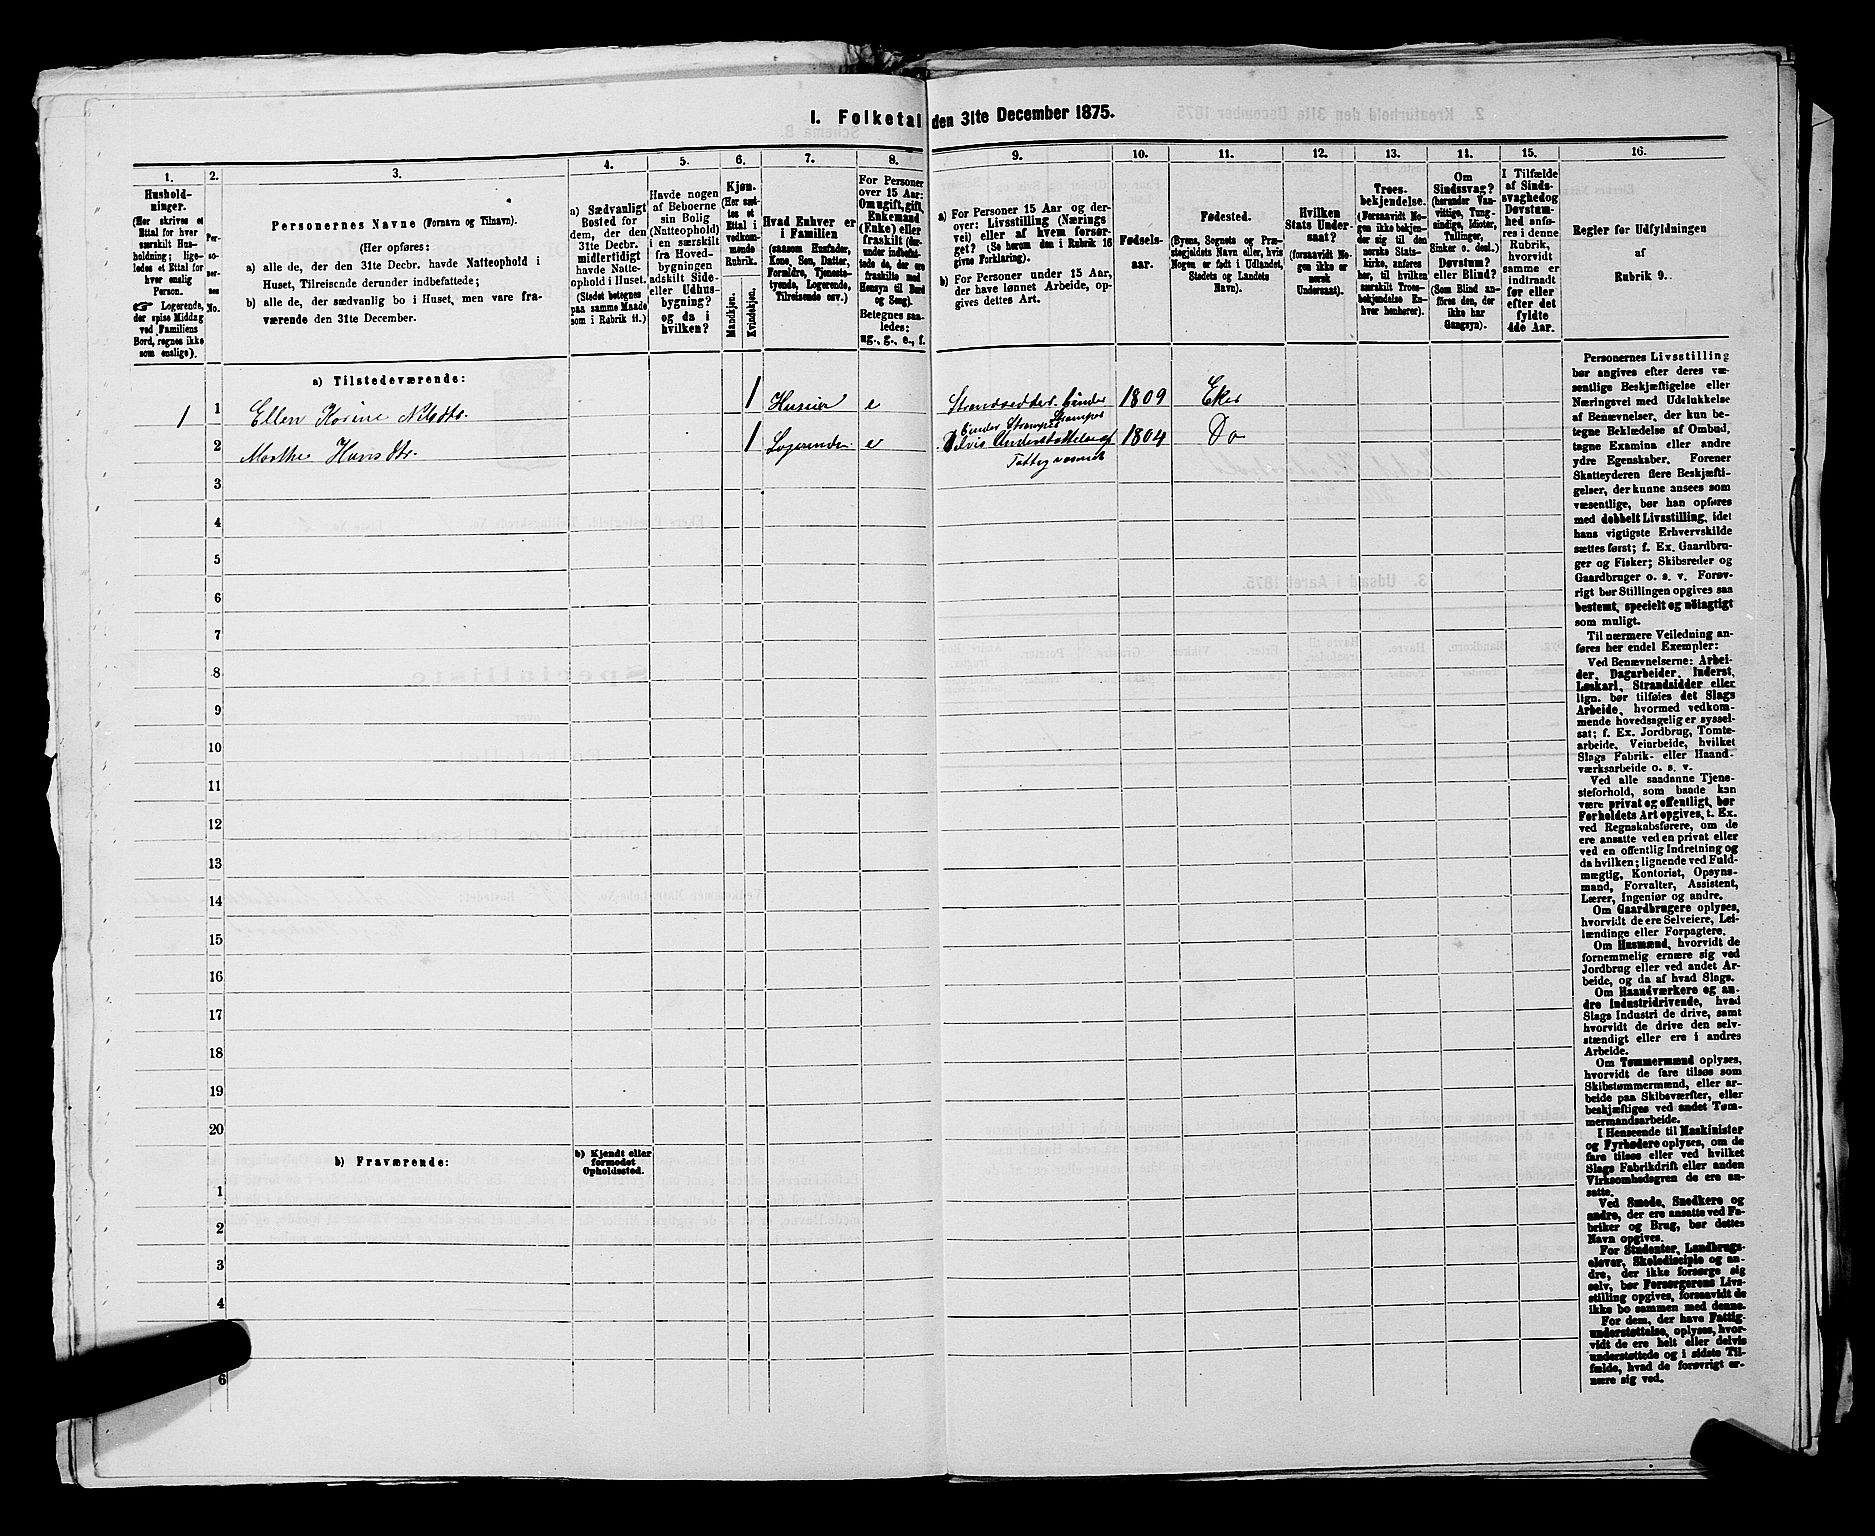 I. Folketal den 31te December 1875.
1. 2. 3. 4. 5. 6. 7. 8. 9. 10. 11. 12. 13. 14. 15. 16.
Hushold-
ninger.
(Her skrives et
Ettal for hver
særskilt Hus-
holdning; lige-
ledes et Ettal for
hver enslig
Person.
☞ Logerende,
der spise Middag
ved Familiens
Bord, regnes ikke
som enslige).
Per-
so-
ner-
nes
No.
Personernes Navne (Fornavn og Tilnavn).
(Her opføres:
a) alle de, der den 31te Decbr. havde Natteophold i
Huset, Tilreisende derunder indbefattede;
b) alle de, der sædvanlig bo i Huset, men vare fra-
værende den 31te December.
a) Sædvanligt
Bosted for
dem, der den
31te Decbr.
midlertidigt
havde Natte-
ophold i Huset.
(Stedet betegnes
paa samme Maade
som i Rubrik 11.)
Havde nogen
af Beboerne
sin Bolig
(Natteophold)
i en særskilt
fra Hoved-
bygningen
adskilt Side-
eller Udhus-
bygning?
og da i
hvilken?
Kjøn.
(Her sæt-
tes et
Ettal i
vedkom-
mende
Rubrik.
Mandkjøn.
Kvindekjøn.
Hvad Enhver er
i Familien
(saasom Husfader,
Kone, Søn, Datter,
Forældre, Tjeneste-
tyende, Logerende,
Tilreisende osv.)
For Personer
over 15 Aar:
Om ugift, gift,
Enkemand
(Enke) eller
fraskilt (der-
under indbefat-
tede de, der ere
fraskilte med
Hensyn til Bord
og Seng).
Betegnes saa-
ledes:
ug., g., e., f.
a) For Personer 15 Aar og der-
over: Livsstilling (Nærings-
vei) eller af hvem forsør-
get? (Se herom den i Rubrik 16
givne Forklaring).
b) For Personer under 15 Aar,
der have lønnet Arbeide, op-
gives dettes Art.
Fødsels-
aar.
Fødested.
(Byens, Sognets og Præ-
stegjeldets Navn eller, hvis
Nogen er født i Udlandet,
Stedets og Landets
Navn).
Hvilken
Stats Under-
saat?
(forsaavidt No-
gen ikke er
norsk
Undersaat).
Troes-
bekjendelse.
(Forsaavidt No-
gen ikke bekjen-
der sig til den
norske Stats-
kirke, anføres
her, til hvilken
særskilt Troes-
bekjendelse En-
hver henhører).
Om
Sindssvag?
(herunder Van-
vittige, Tung-
sindige, Idioter,
Tullinger,
Sinker o. desl.)
Døvstum?
eller Blind?
(Som Blind an-
føres den, der
ikke har
Gangsyn).
I Tilfælde
af Sinds-
svaghed og
Døvstum-
hed anfø-
res i denne
Rubrik,
hvorvidt
samme er
indtraadt
før eller
efter det
fyldte
4de Aar.
Regler for Udfyldningen
af
Rubrik 9.
a) Tilstedeværende:
1 1 Ellen Karine Nilsdtr. 1 Husier e Strandsidder. binder Strømper 1809 Eker
2 Marthe Hansdtr. 1 Logerende e binder Strømper 1804 Do
Delvis Understøttelse af
Fattigvæsenet
3
4
5
6
7
8
9
10
11
12
13
14
15
16
17
18
19
20
b) Fraværende:
b) Kjendt eller
formodet
Opholdssted.
1
2
3
4
6
Personernes Livsstilling
bør angives efter deres væ-
sentlige Beskjæftigelse eller
Næringsvei med Udelukkelse
af Benævnelser, der kun be-
tegne Beklædelse af Ombud,
tagne Examina eller andre
ydre Egenskaber. Forener
Skatteyderen flere Beskjæfti-
gelser, der kunne ansees som
væsentlige, bør han opføres
med dobbelt Livsstilling, idet
hans vigtigste Erhvervskilde
sættes først; f. Ex. Gaardbru-
ger og Fisker; Skibsreder og
Gaardbruger o. s. v. Forøv-
rigt bør Stillingen opgives saa
bestemt, specielt og nöiagtigt
som muligt.
Til nærmere Veiledning an-
føres her endel Exempler:
Ved Benævnelserne: Arbei-
der, Dagarbeider, Inderst,
Løskarl, Strandsidder eller
lign. bør tilføies det Slags
Arbeide, hvormed vedkom-
mende hovedsagelig er syssel-
sat; f. Ex. Jordbrug, Tomte-
arbeide, Veiarbeide, hvilket
Slags Fabrik- eller Haand-
værksarbeide o. s. v.
Ved alle saadanne Tjene-
steforhold, som baade kan
være privat og offentligt, bør
Forholdets Art opgives, t. Ex.
ved Regnskabsførere, om de
ere ansatte ved en privat eller
ved en offentlig Indretning og
da hvilken; lignende ved Fuld-
mægtig, Kontorist, Opsyns-
mand, Forvalter, Assistent,
Lærer, Ingeniør og andre.
Om Gaardbrugere oplyses,
hvorvidt de ere Selveiere, Lei-
lændinge eller Forpagtere.
Om Husmænd, hvorvidt de
fornemmelig ernære sig ved
Jordbrug eller ved andet Ar-
beide, og da af hvad Slags.
Om Haandværkere og an-
dre Industridrivende, hvad
Slags Industri de drive, samt
hvorvidt de drive den selv-
stændigt eller ere i andres
Arbeide.
Om Tømmermænd oplyses,
hvorvidt de fare tilsøs som
Skibstømmermænd, eller ar-
beide paa Skibsværfter, eller
beskjæftiges ved andet Tøm-
mermandsarbeide.
I Henseende til Maskinister
og Fyrbødere oplyses, om de
fare tilsøs eller ved hvilket
Slags Fabrikdrift eller anden
Virksomhedsgren de ere an-
satte.
Ved Smede, Snedkere og
andre, der ere ansatte ved Fa-
briker og Brug, bør dettes
Navn opgives.
For Studenter, Landbrugs-
elever, Skoledisciple og an-
dre, der ikke forsørge sig
selv, bør Forsørgerens Livs-
stilling opgives, forsaavidt de
ikke bo sammen med denne.
For dem, der have Fattig-
understøttelse, oplyses, hvor-
vidt de ere helt eller delvis
understøttede og i sidste Til-
fælde, hvad de forøvrigt er-
nære sig ved.